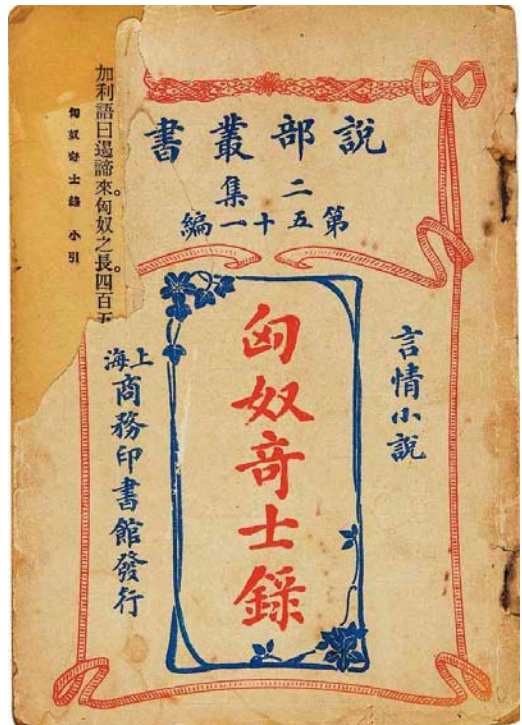 說部叢書
二集
第五十一編
言情小說
匈奴奇士錄
上海
商務印書館發行
加利語曰遏諦來匈奴之長四百五
匈奴奇士錄 小引